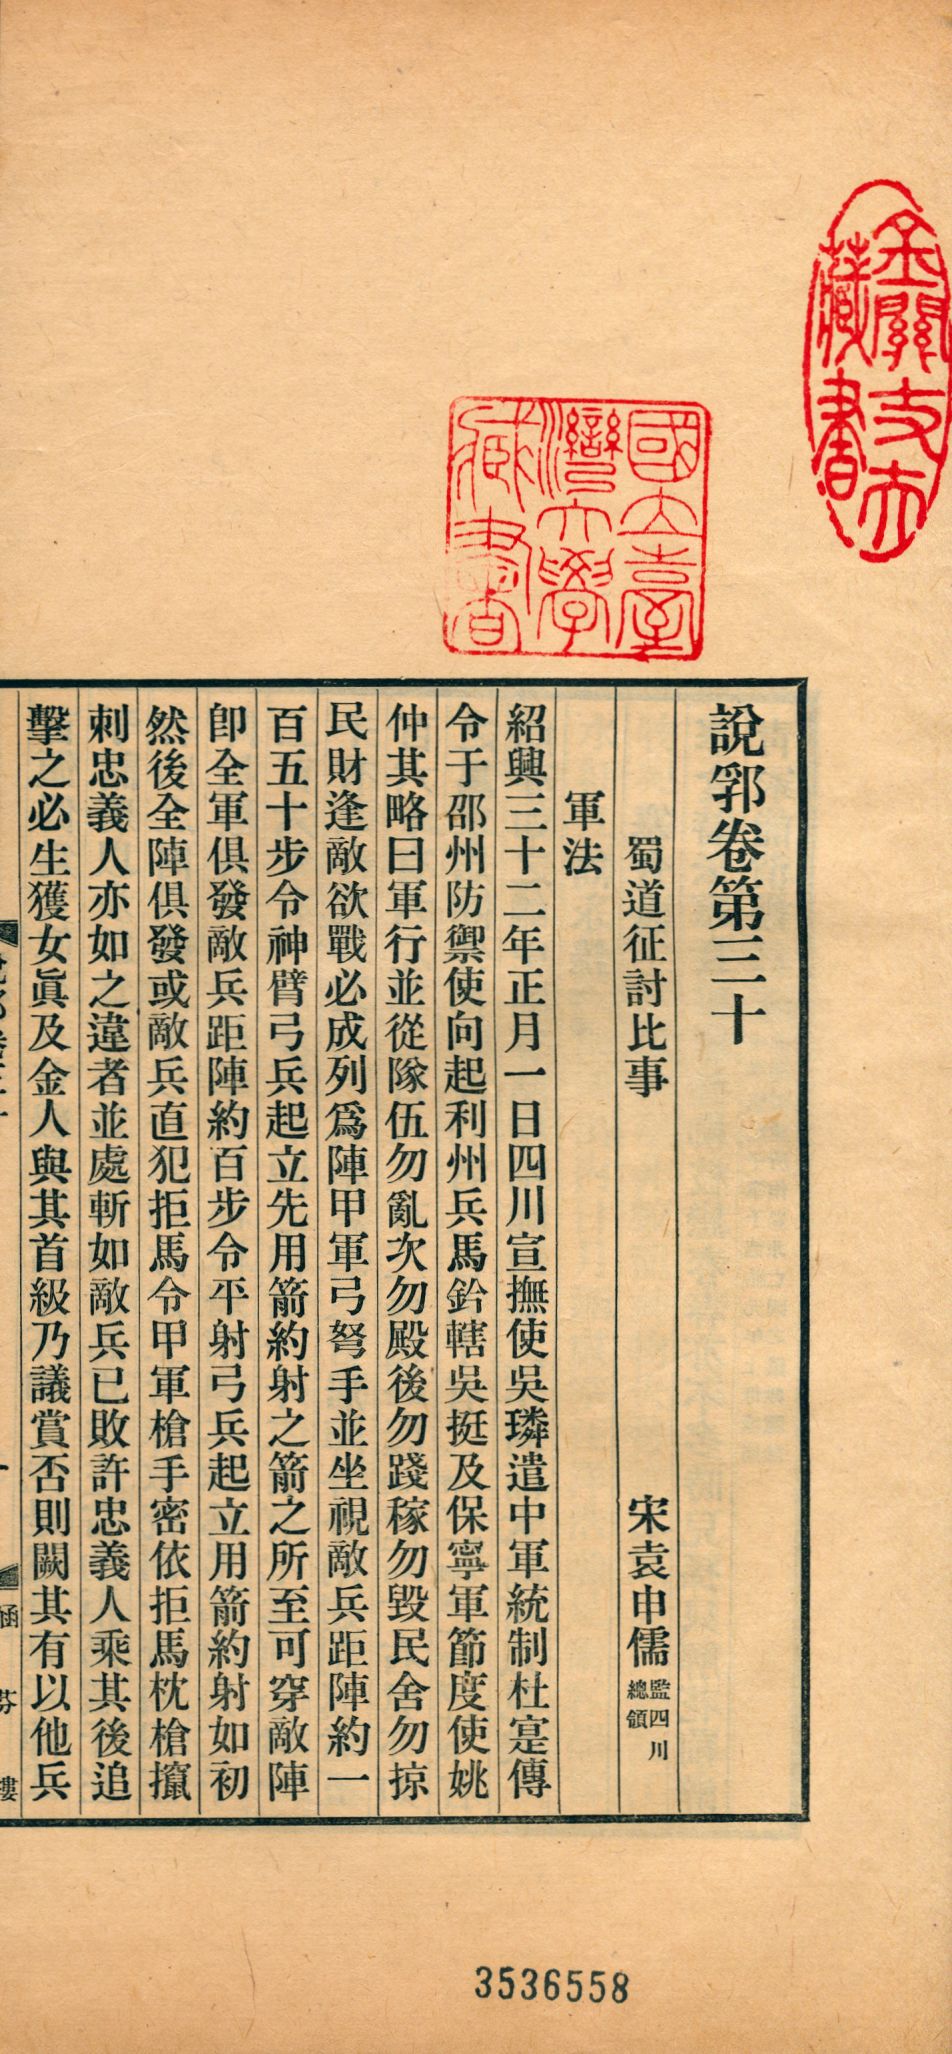 說郛卷第三十
蜀道征討比事
宋袁申儒 監四川總領
軍法
紹興三十二年正月一日四川宣撫使吳璘遣中軍統制杜寔傳
令于邵州防禦使向起利州兵馬鈐轄吳挺及保寧軍節度使姚
仲其略曰軍行並從隊伍勿亂次勿殿後勿踐稼勿毀民舍勿掠
民財逢敵欲戰必成列爲陣甲軍弓弩手並坐視敵兵距陣約一
百五十步令神臂弓兵起立先用箭約射之箭之所至可穿敵陣
卽全軍俱發敵兵距陣約百步令平射弓兵起立用箭約射如初
然後全陣俱發或敵兵直犯拒馬令甲軍槍手密依拒馬枕槍攛
刺忠義人亦如之違者並處斬如敵兵已敗許忠義人乘其後追
擊之必生獲女眞及金人與其首級乃議賞否則闕其有以他兵
涵芬樓
國立臺
灣大學
藏書
金關丈夫
藏書
3536558